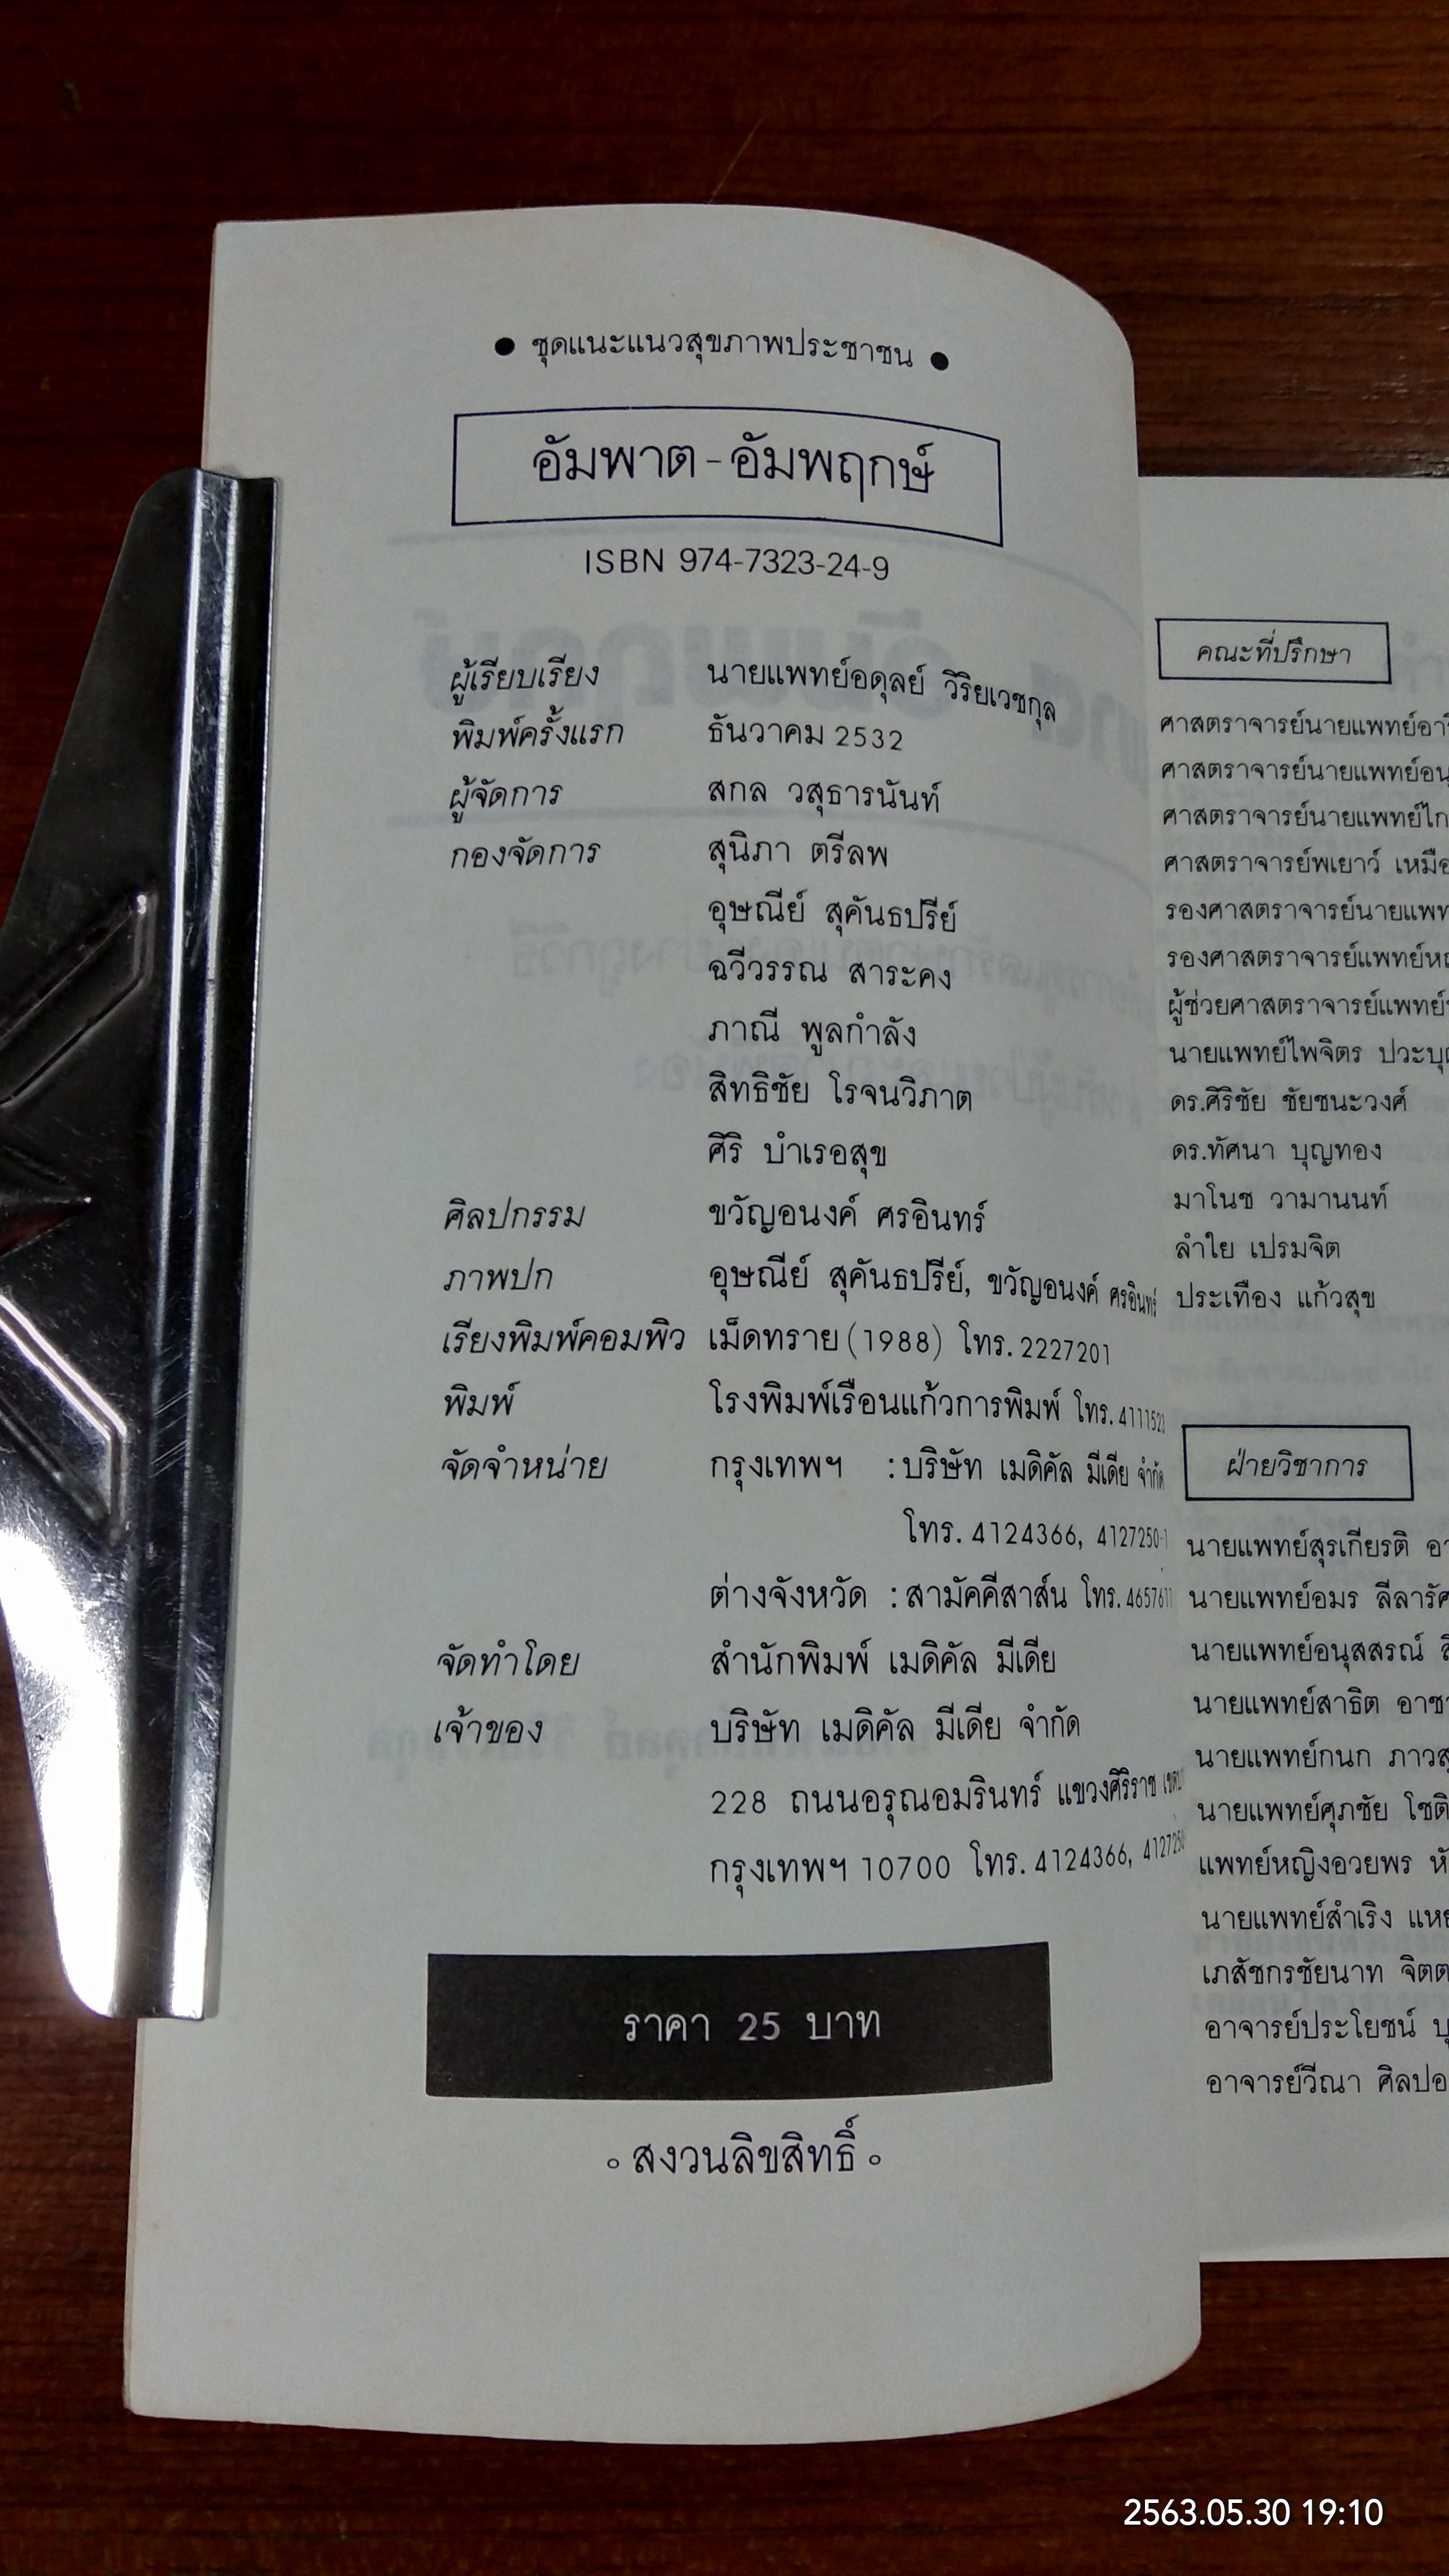 ● ชุดแนะแนวสุขภาพประชาชน ●
อัมพาต-อัมพฤกษ์
ISBN 974-7323-24-9
ผู้เรียบเรียง นายแพทย์อดุลย์ วิริยเวชกุล
พิมพ์ครั้งแรก ธันวาคม 2532
ผู้จัดการ สกล วสุธารนันท์
กองจัดการ สุนิภา ตรีลพ
อุษณีย์ สุคันธปรีย์
ฉวีวรรณ สาระคง
ภาณี พูลกำลัง
สิทธิชัย โรจนวิภาต
ศิริ บำเรอสุข
ศิลปกรรม ขวัญอนงค์ ศรอินทร์
ภาพปก อุษณีย์ สุคันธปรีย์, ขวัญอนงค์ ศรอินทร์
เรียงพิมพ์คอมพิว เม็ดทราย (1988) โทร. 2227201
พิมพ์ โรงพิมพ์เรือนแก้วการพิมพ์ โทร. 4111523
จัดจำหน่าย กรุงเทพฯ : บริษัท เมดิคัล มีเดีย จำกัด
โทร. 4124366, 4127250-1
ต่างจังหวัด : สามัคคีสาส์น โทร.
จัดทำโดย สำนักพิมพ์ เมดิคัล มีเดีย
เจ้าของ บริษัท เมดิคัล มีเดีย จำกัด
228 ถนนอรุณอมรินทร์ แขวงศิริราช
กรุงเทพฯ 10700 โทร. 4124366,
ราคา 25 บาท
◦ สงวนลิขสิทธิ์ ◦
คณะที่ปรึกษา
ศาสตราจารย์นายแพทย์
ศาสตราจารย์นายแพทย์
ศาสตราจารย์นายแพทย์
ศาสตราจารย์พเยาว์
รองศาสตราจารย์
รองศาสตราจารย์
ผู้ช่วยศาสตราจารย์แพทย์
นายแพทย์ไพจิตร
ดร.ศิริชัย ชัยชนะวงศ์
ดร.ทัศนา บุญทอง
มาโนช วามานนท์
ลำใย เปรมจิต
ประเทือง แก้วสุข
ฝ่ายวิชาการ
นายแพทย์สุรเกียรติ
นายแพทย์อมร
นายแพทย์อนุสสรณ์
นายแพทย์สาธิต
นายแพทย์กนก
นายแพทย์ศุภชัย
แพทย์หญิงอวยพร
นายแพทย์สำเริง
เภสัชกรชัยนาท
อาจารย์ประโยชน์
อาจารย์วีณา
2563.05.30 19:10